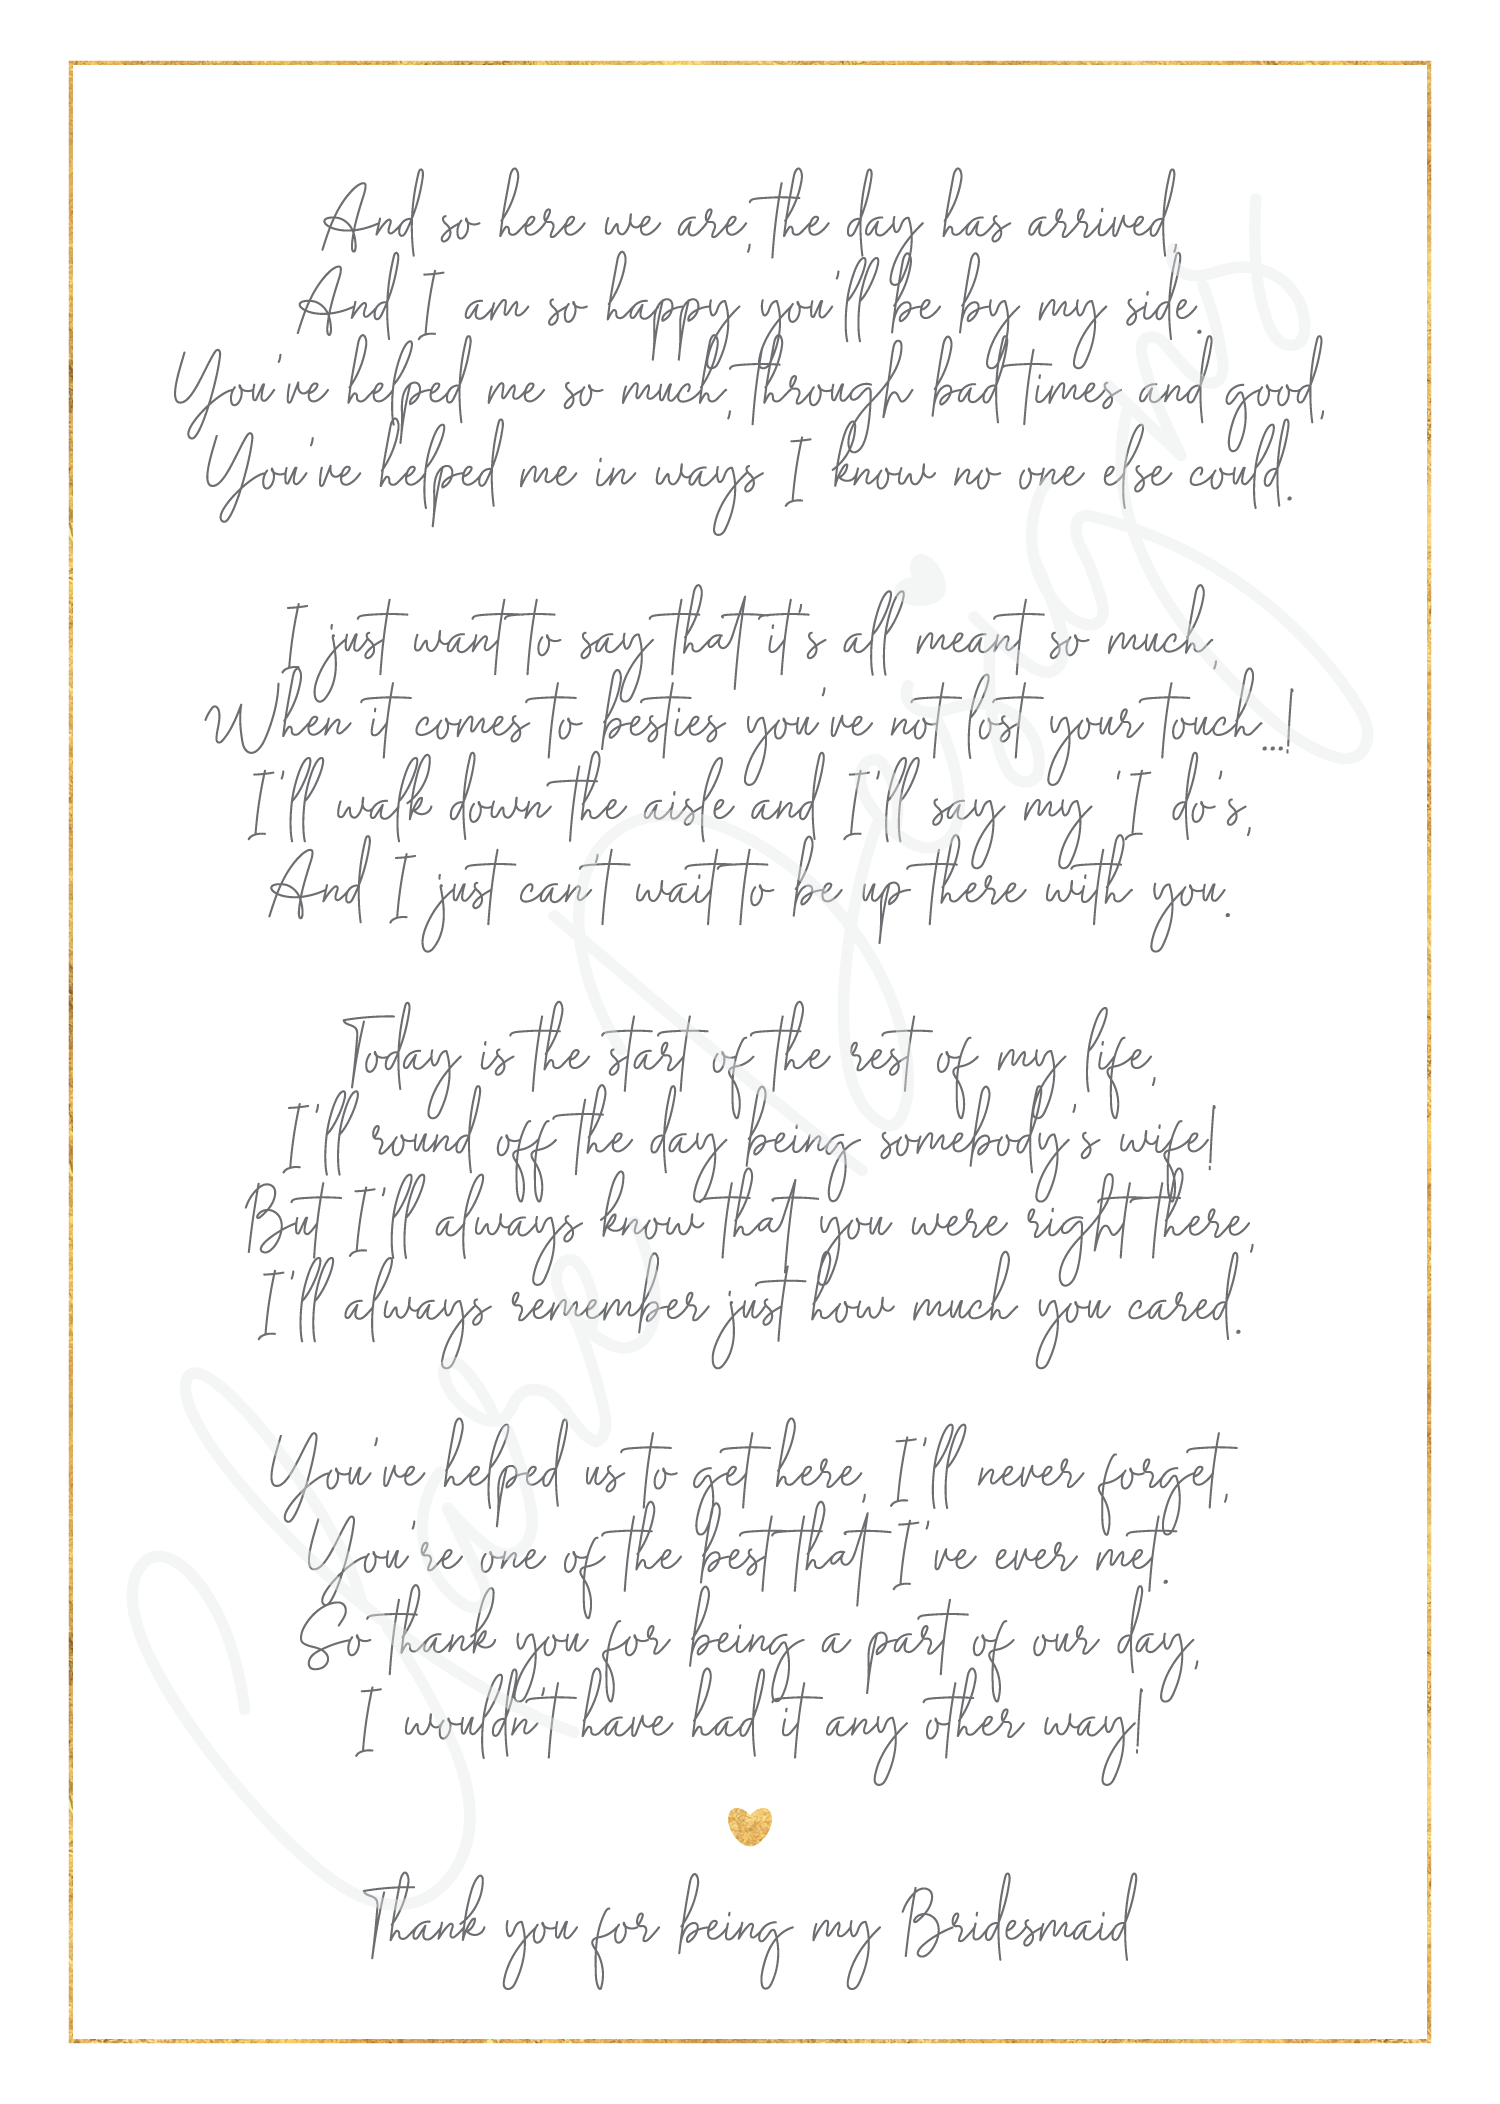 And so here we are, the day has arrived,
And I am so happy you'll be by my side.
You've helped me so much, through bad times and good,
You've helped me in ways I know no one else could.
I just want to say that it's all meant so much,
When it comes to besties you've not lost your touch...!
I'll walk down the aisle and I'll say my 'I do's,
And I just can't wait to be up there with you.
Today is the start of the rest of my life,
I'll round off the day being somebody's wife!
But I'll always know that you were right there,
I'll always remember just how much you cared.
You've helped us to get here, I'll never forget,
You're one of the best that I've ever met.
So thank you for being a part of our day,
I wouldn't have had it any other way!
Thank you for being my Bridesmaid
Clare Designs